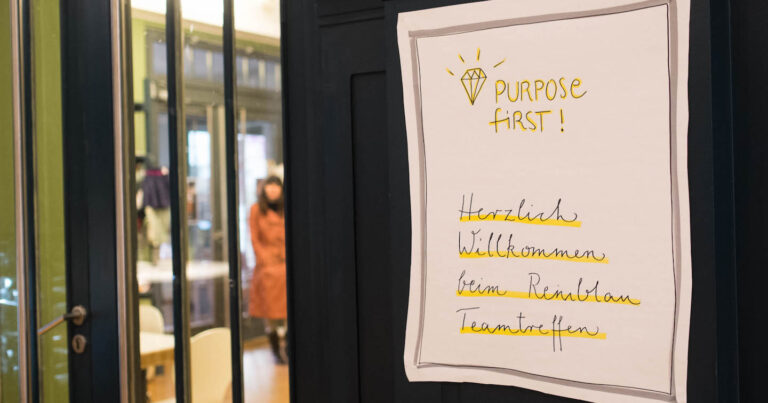 PURPOSE
FiRST!
Herzlich
Willkommen
beim Reinblau
Teamtreffen